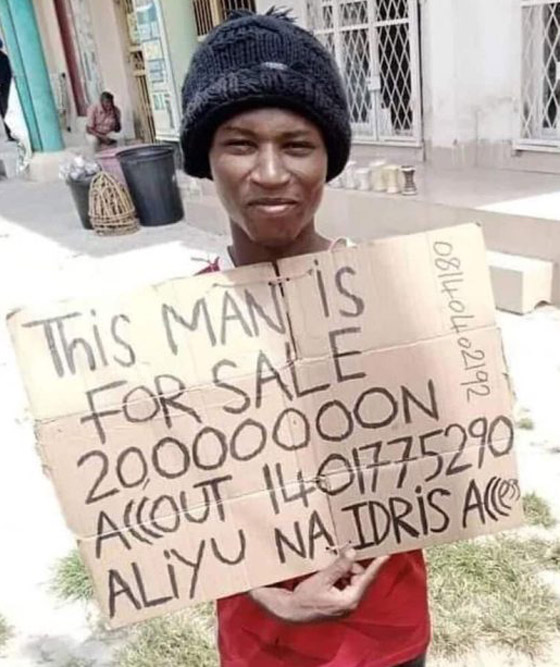 This MAN iS
FOR SALE
20000000N
ACCOUT 1401775290
ALiYU NA IDRiS Acces
08140402192